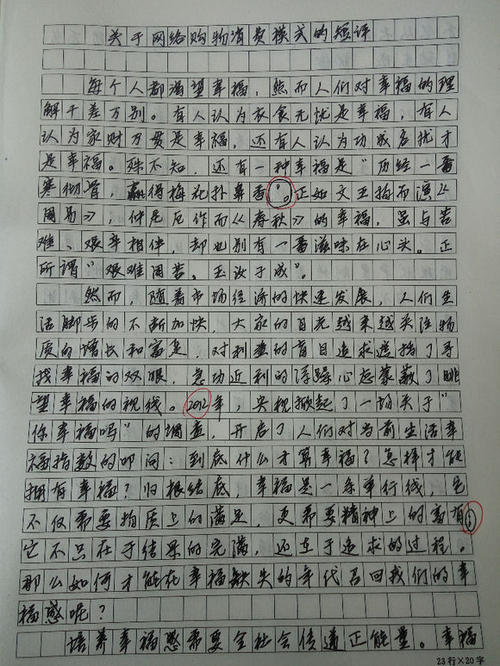 关于网络购物消费模式的短评
每个人都渴望幸福，然而人们对幸福的理
解千差万别。有人认为衣食无忧是幸福，有人
认为家财万贯是幸福，还有人认为功成名就才
是幸福。殊不知，还有一种幸福是"历经一番
寒彻骨，赢得梅花扑鼻香"。正如文王拘而演《
周易》，仲尼厄作而《春秋》的幸福，虽与苦
难、艰辛相伴，却也别有一番滋味在心头。正
所谓"艰难困苦，玉汝于成"。
然而，随着市场经济的快速发展，人们生
活脚步的不断加快，大家的目光越来越关注物
质的增长和富足，对利益的盲目追求遮挡了寻
找幸福的双眼，急功近利的浮躁心态蒙蔽了眺
望幸福的视线。2012年，央视掀起了一拍关于"
你幸福吗"的调查，开启了人们对当前生活幸
福指数的叩问：到底什么才算幸福？怎样才能
拥有幸福？归根结底，幸福是一条平行线，它
不仅需要物质上的满足，更需要精神上的富有；
它不只在于结果的完满，还在于追求的过程。
那么如何才能在幸福缺失的年代召回我们的幸
福感呢？
培养幸福感需要全社会传递正能量。幸福
23行×20字